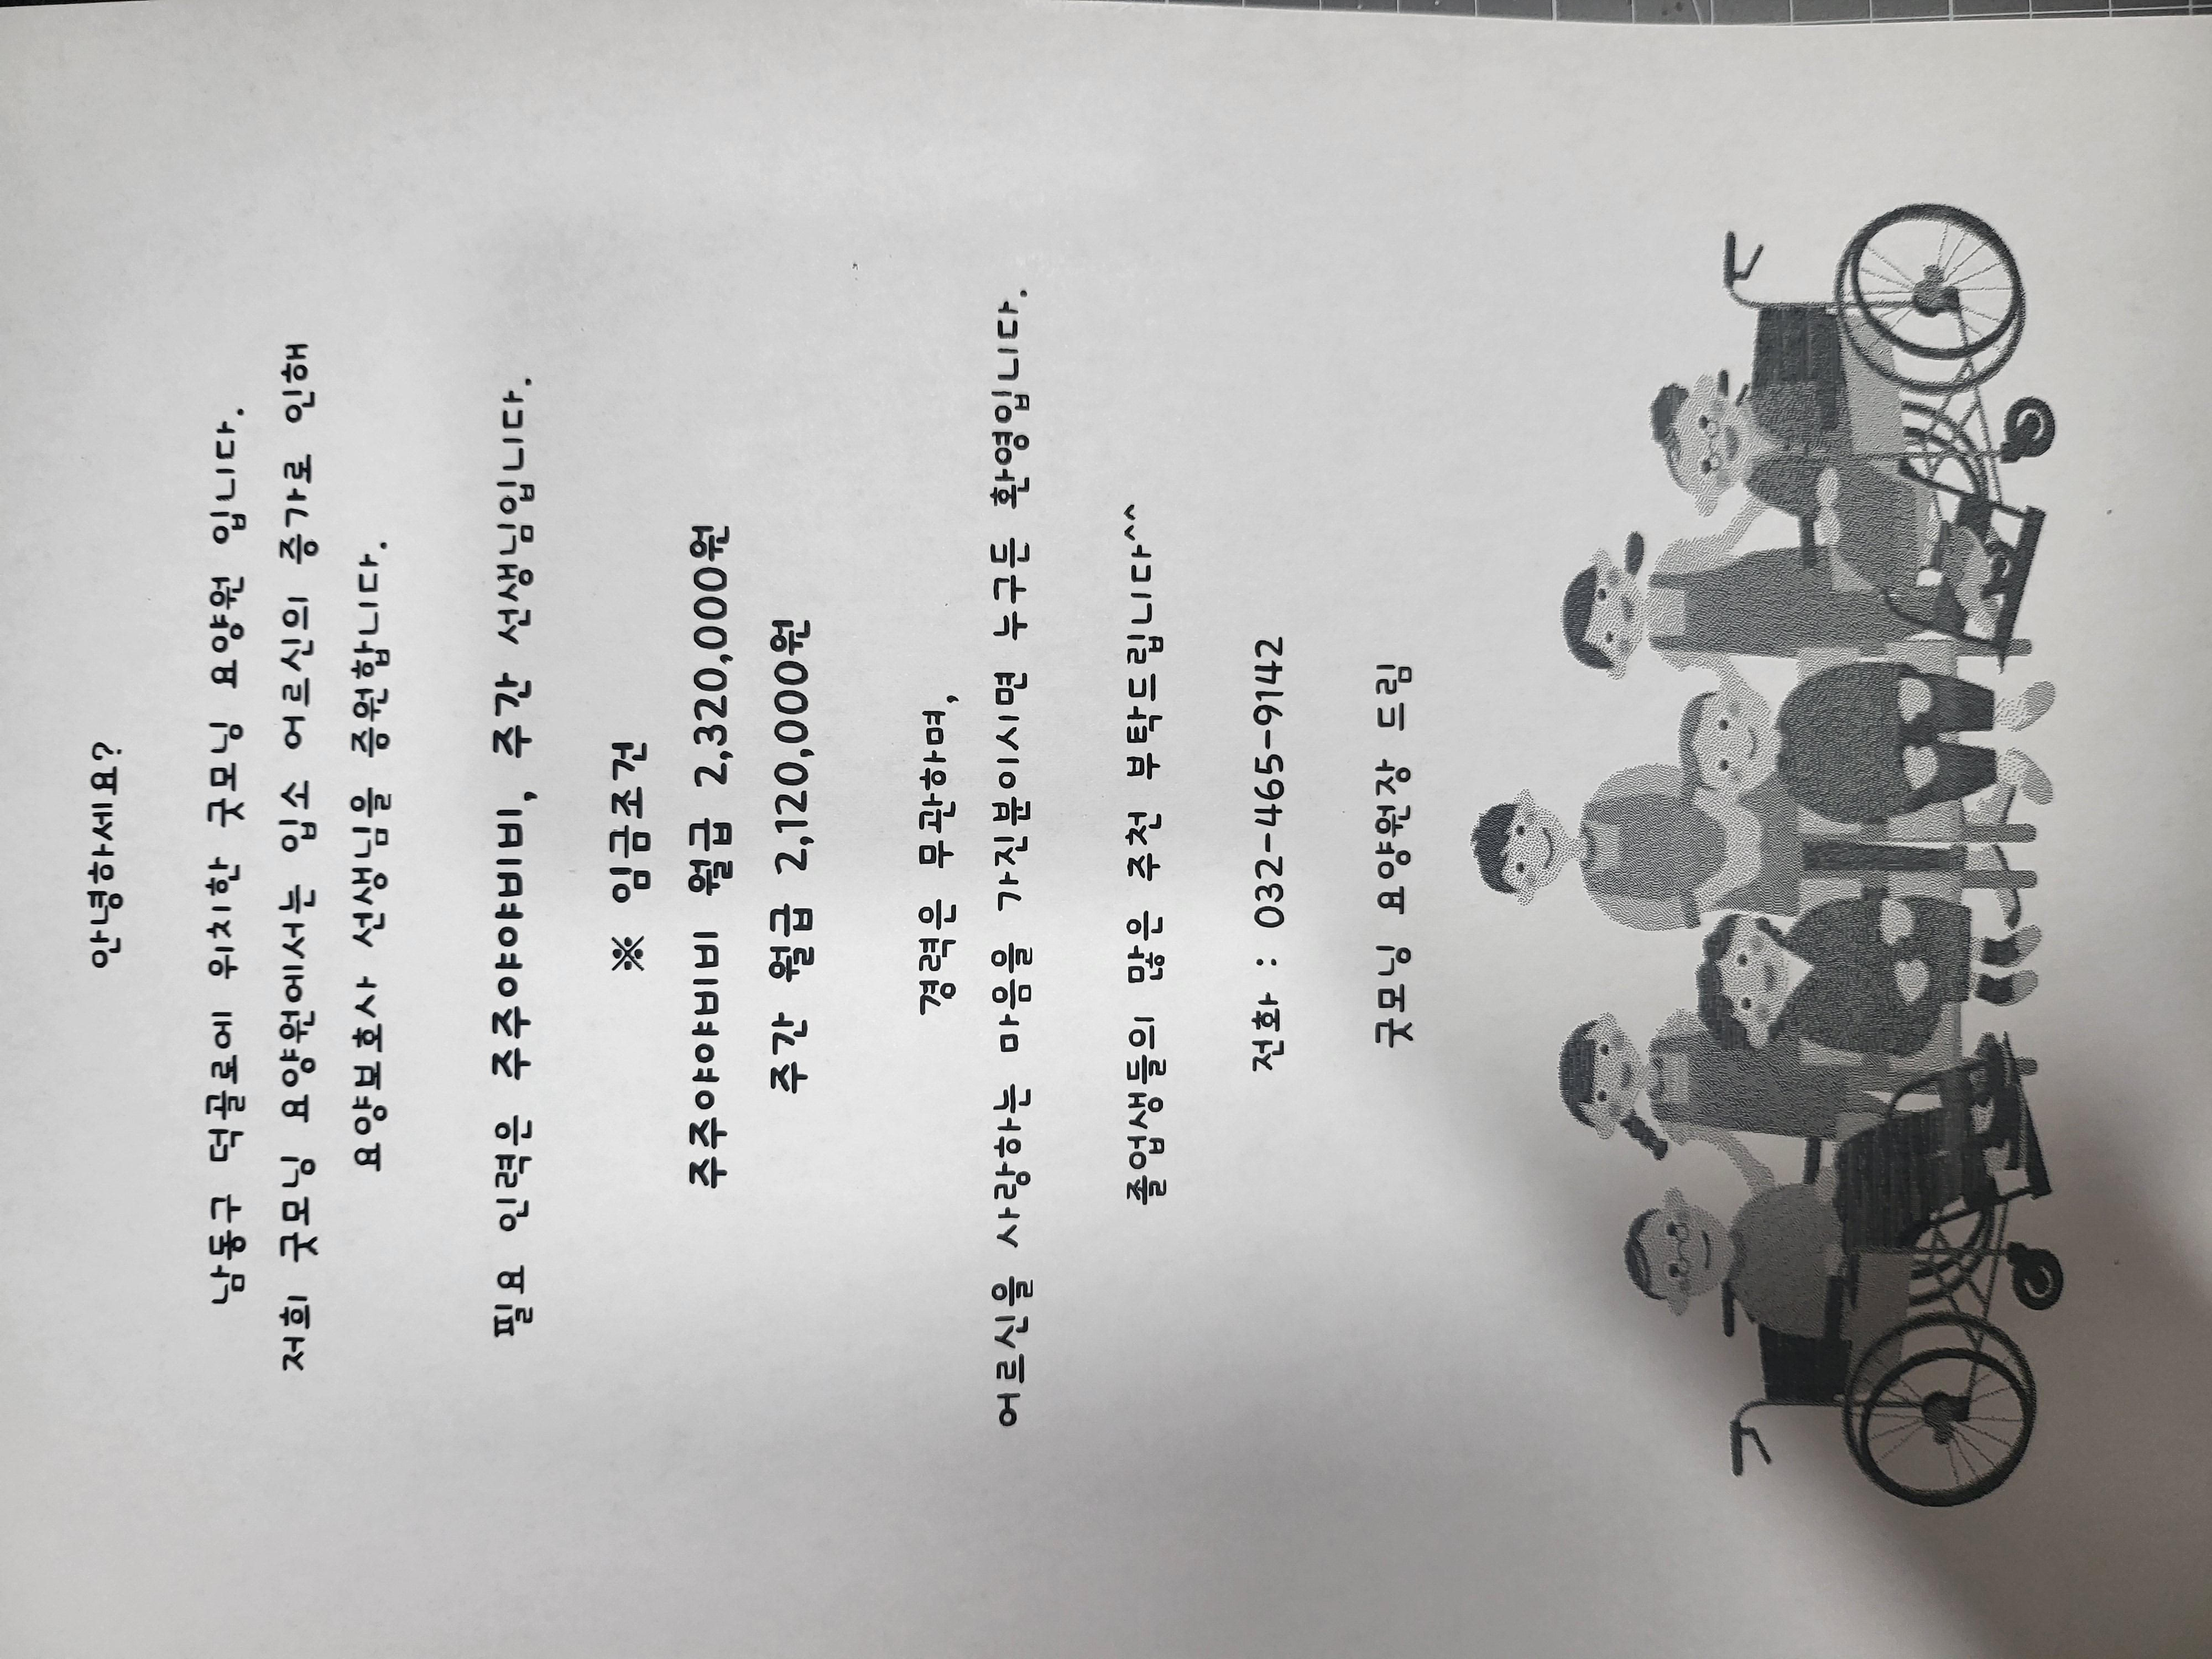 안녕하세요?
남동구 덕골로에 위치한 굿모닝 요양원 입니다.
저희 굿모닝 요양원에서는 입소 어르신의 증가로 인해
요양보호사 선생님을 증원합니다.
필요 인력은 주주야야비비, 주간 선생님입니다.
※ 임금조건
주주야야비비 월급 2,320,000원
주간 월급 2,120,000원
경력은 무관하며,
어르신을 사랑하는 마음을 가진분이시면 누구든 환영입니다.
졸업생들의 많은 추천 부탁드립니다^^
전화 : 032-465-9142
굿모닝 요양원장 드림